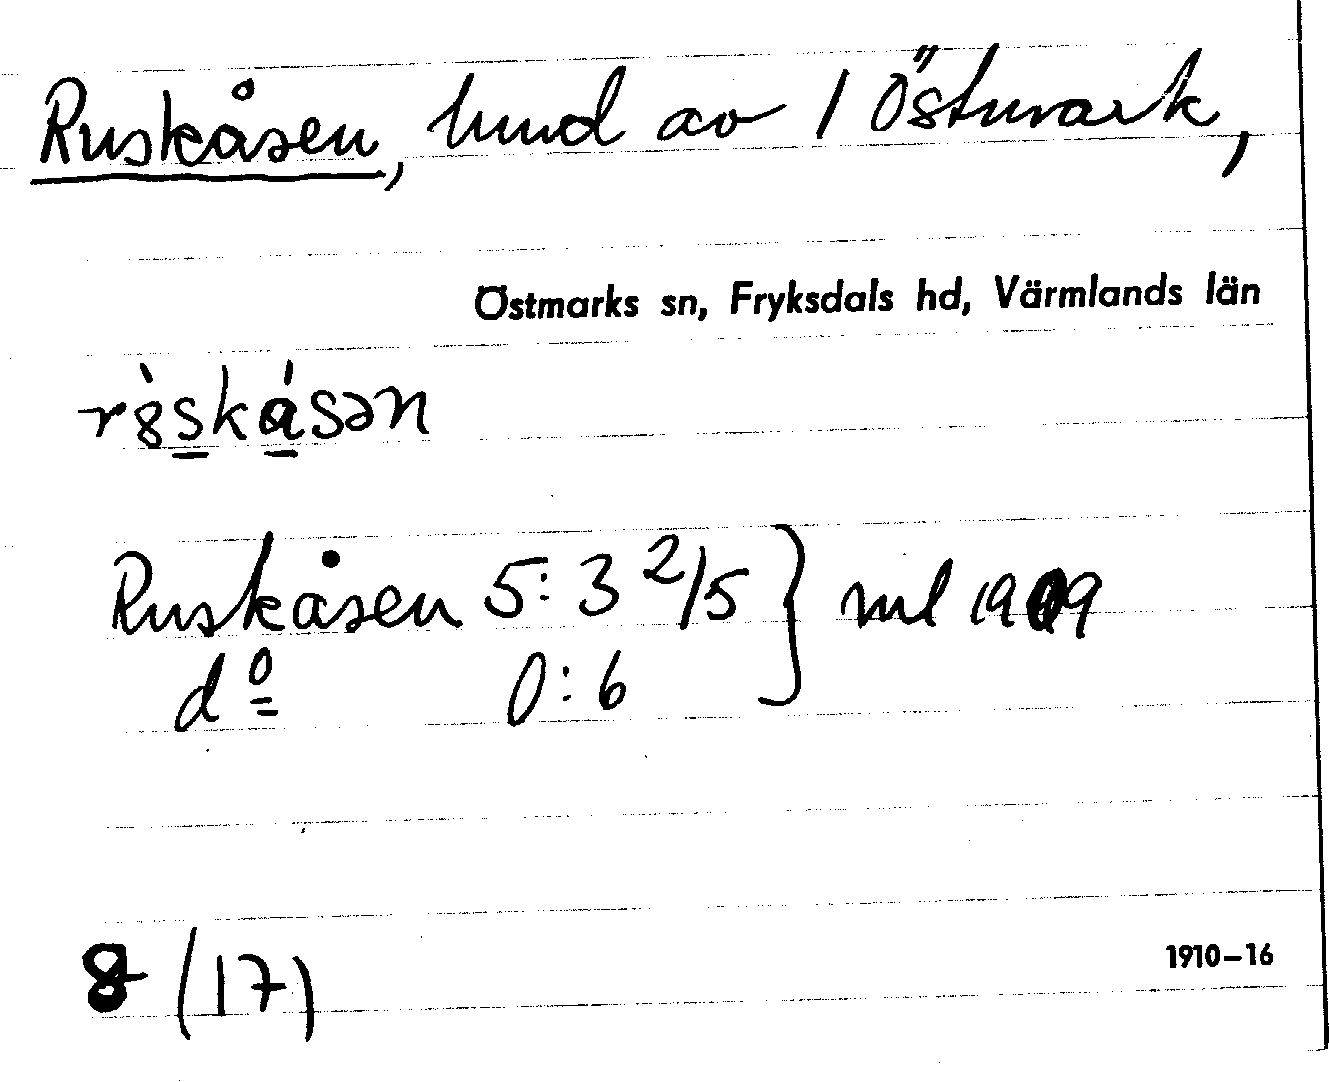 Ruskåsen, hmd av 1 Östmark,
Östmarks sn, Fryksdals hd, Värmlands län
r8̀skásən
Ruskåsen 5:3 2/5 } ml 1909
dº 0:6
8 (17)
1910–16